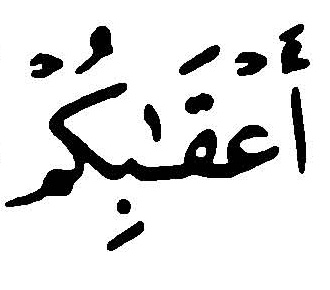 أَعْقَٰبِكُمْ